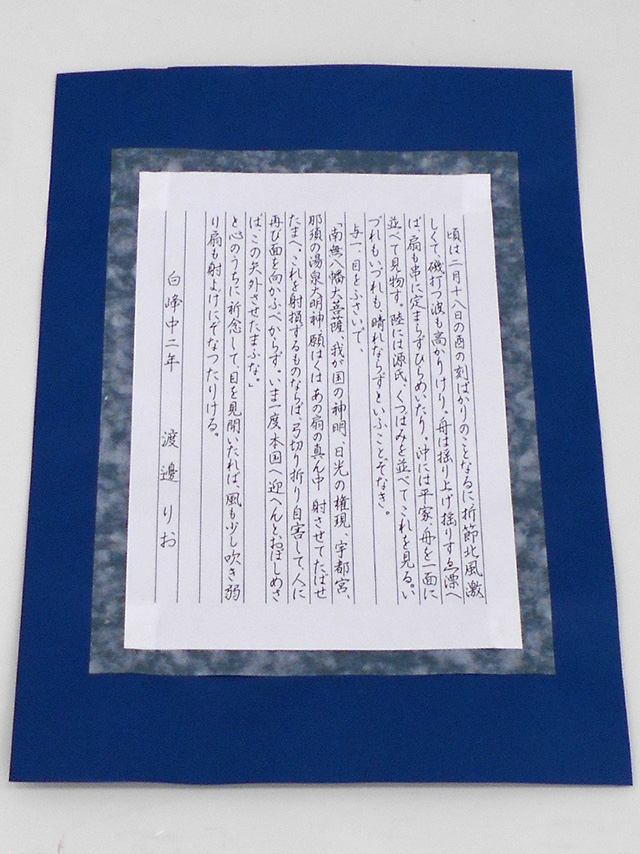 頃は二月十八日の酉の刻ばかりのことなるに折節北風激
しくて磯打つ波も高かりけり。舟は揺り上げ揺りすゑ漂へ
ば、扇も串に定まらずひらめいたり。沖には平家、舟を一面に
並べて見物す。陸には源氏、くつばみを並べてこれを見る。い
づれもいづれも、晴れならずといふことぞなき。
与一、目をふさいで、
「南無八幡大菩薩、我が国の神明、日光の権現、宇都宮、
那須の湯泉大明神、願はくはあの扇の真ん中射させてたばせ
たまへ。これを射損ずるものならば、弓切り折り自害して、人に
再び面を向かふべからず。いま一度、本国へ迎へんとおぼしめさ
ば、この矢外させたまふな。」
と心のうちに祈念して、目を見開いたれば、風も少し吹き弱
り扇も射よげにぞなつたりける。
白峰中二年 渡邊りお